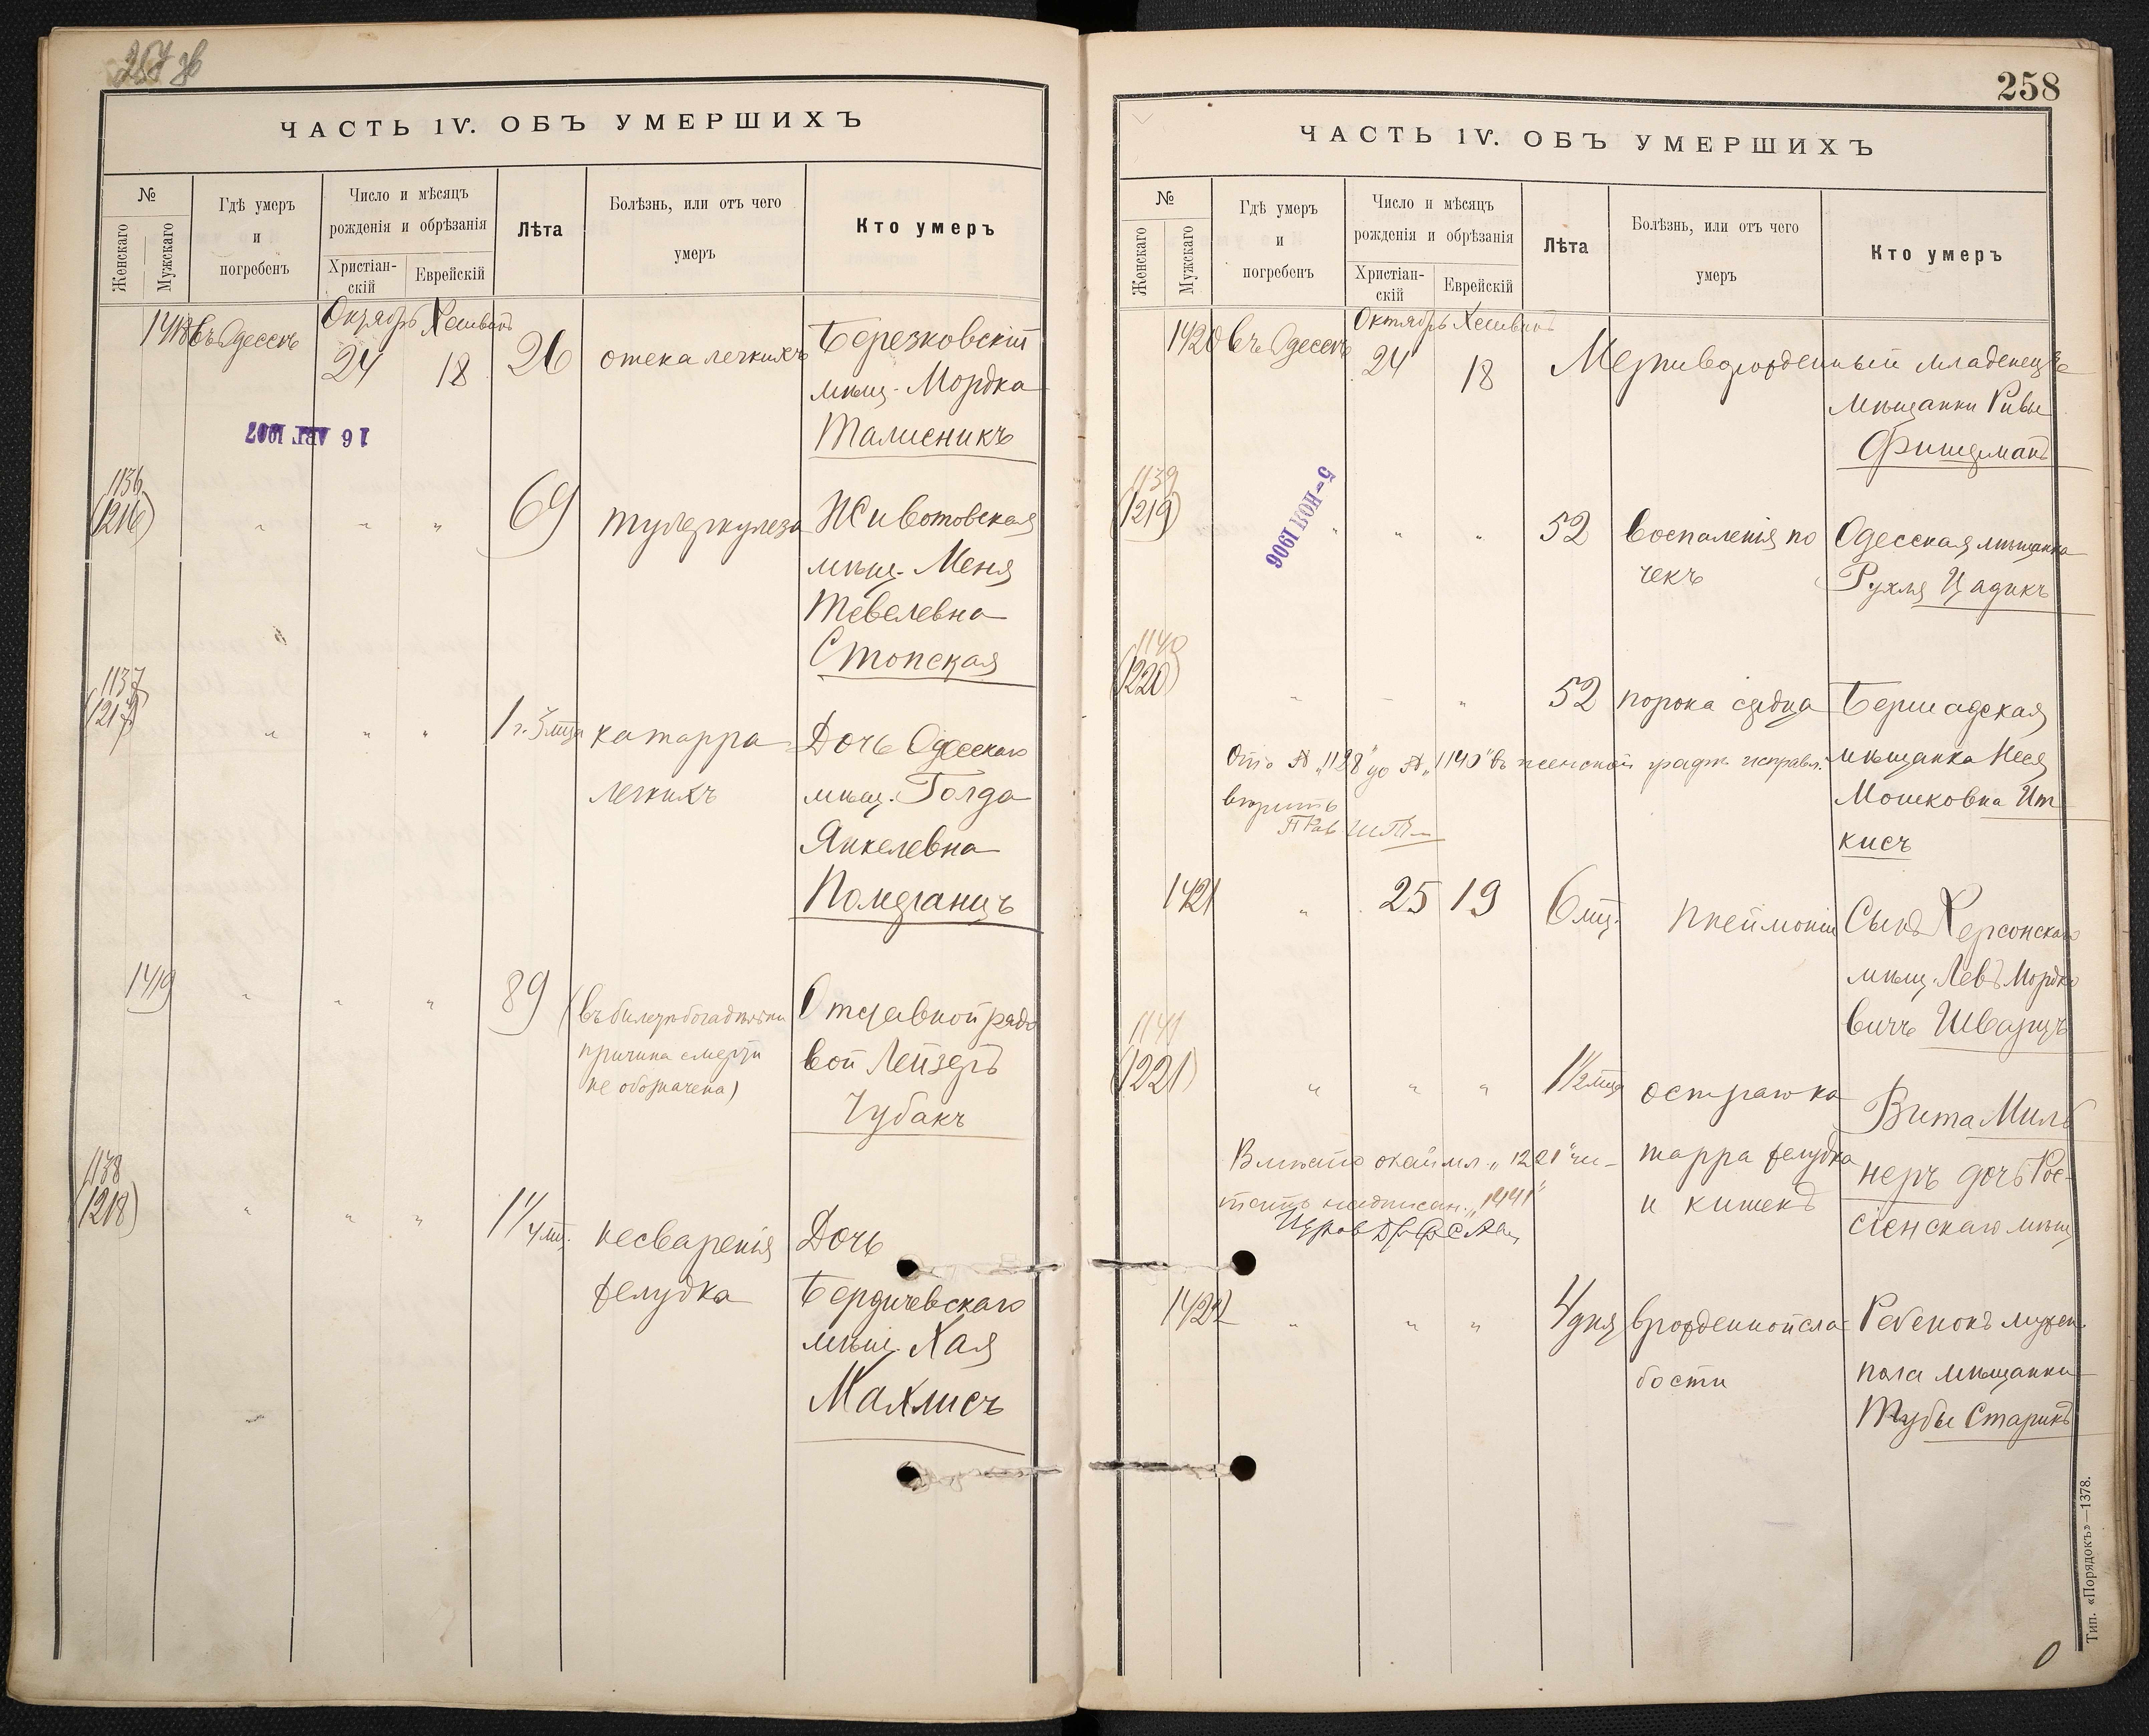 257 об
ЧАСТЬ IV. ОБЪ УМЕРШИХЪ
№
Женскаго
Мужскаго
Гдѣ умеръ
и
погребенъ
Число и мѣсяцъ
рожденія и обрѣзанія
Христіан-
скій
Еврейскій
Лѣта
Болѣзнь, или отъ чего
умеръ
Кто умеръ
1418 въ Одессѣ Октябрь 24 Хешванъ 18 26 отека легкихъ Березковскій
мѣщ. Мордка
Талисникъ
16 АВГ. 1907
1136
(1216) " " " 69 туберкулеза Животовская
мѣщ. Меня
Тевелевна
Стопская
1137
(1217) " " " 1 г. 3 мца катарра Дочь Одесскаго
легкихъ мѣщ. Голда
Янкелевна
Померанцъ
1419 " " " 89 (въ билетѣ богадѣльни Отставной рядо
причина смерти вой Лейзеръ
не обозначена) Чубакъ
1138
(1218) " " " 1 1/4 мц. несваренія Дочь
желудка Бердичевскаго
мѣщ. Хая
Махлисъ
258
ЧАСТЬ IV. ОБЪ УМЕРШИХЪ
№
Женскаго
Мужскаго
Гдѣ умеръ
и
погребенъ
Число и мѣсяцъ
рожденія и обрѣзанія
Христіан-
скій
Еврейскій
Лѣта
Болѣзнь, или отъ чего
умеръ
Кто умеръ
1420 въ Одессѣ Октябрь 24 Хешванъ 18 Мертворожденный младенецъ
мѣщанки Ривы
Фишерманъ
5-НОЯ 1906
1139
(1219) " " " 52 воспаленія по Одесская мѣщанка
чекъ Рухля Цадикъ
1140
(1220) " " " 52 порока сердца Бершадская
мѣщанка Неся
Мошковна Ит
кисъ
Отъ № "1128" до № "1140" въ женской графѣ исправл.
вѣрить
1421 " 25 19 6 мц. пнеймоніи Сынъ Херсонскаго
мѣщ. Левъ Мордко
вичъ Шварцъ
1141
(1221) " " " 1 1/2 мца остраго ка Вита Миль
тарра желудка неръ дочь Рос-
и кишекъ сіенскаго мѣщ
Вмѣсто окаймл. "1221" чи-
тать надписан. "1141"
1422 " " " 4 дня врожденной сла Ребенокъ мужск.
бости пола мѣщанки
Тубы Старикъ
Тип. «Порядокъ»—1378.